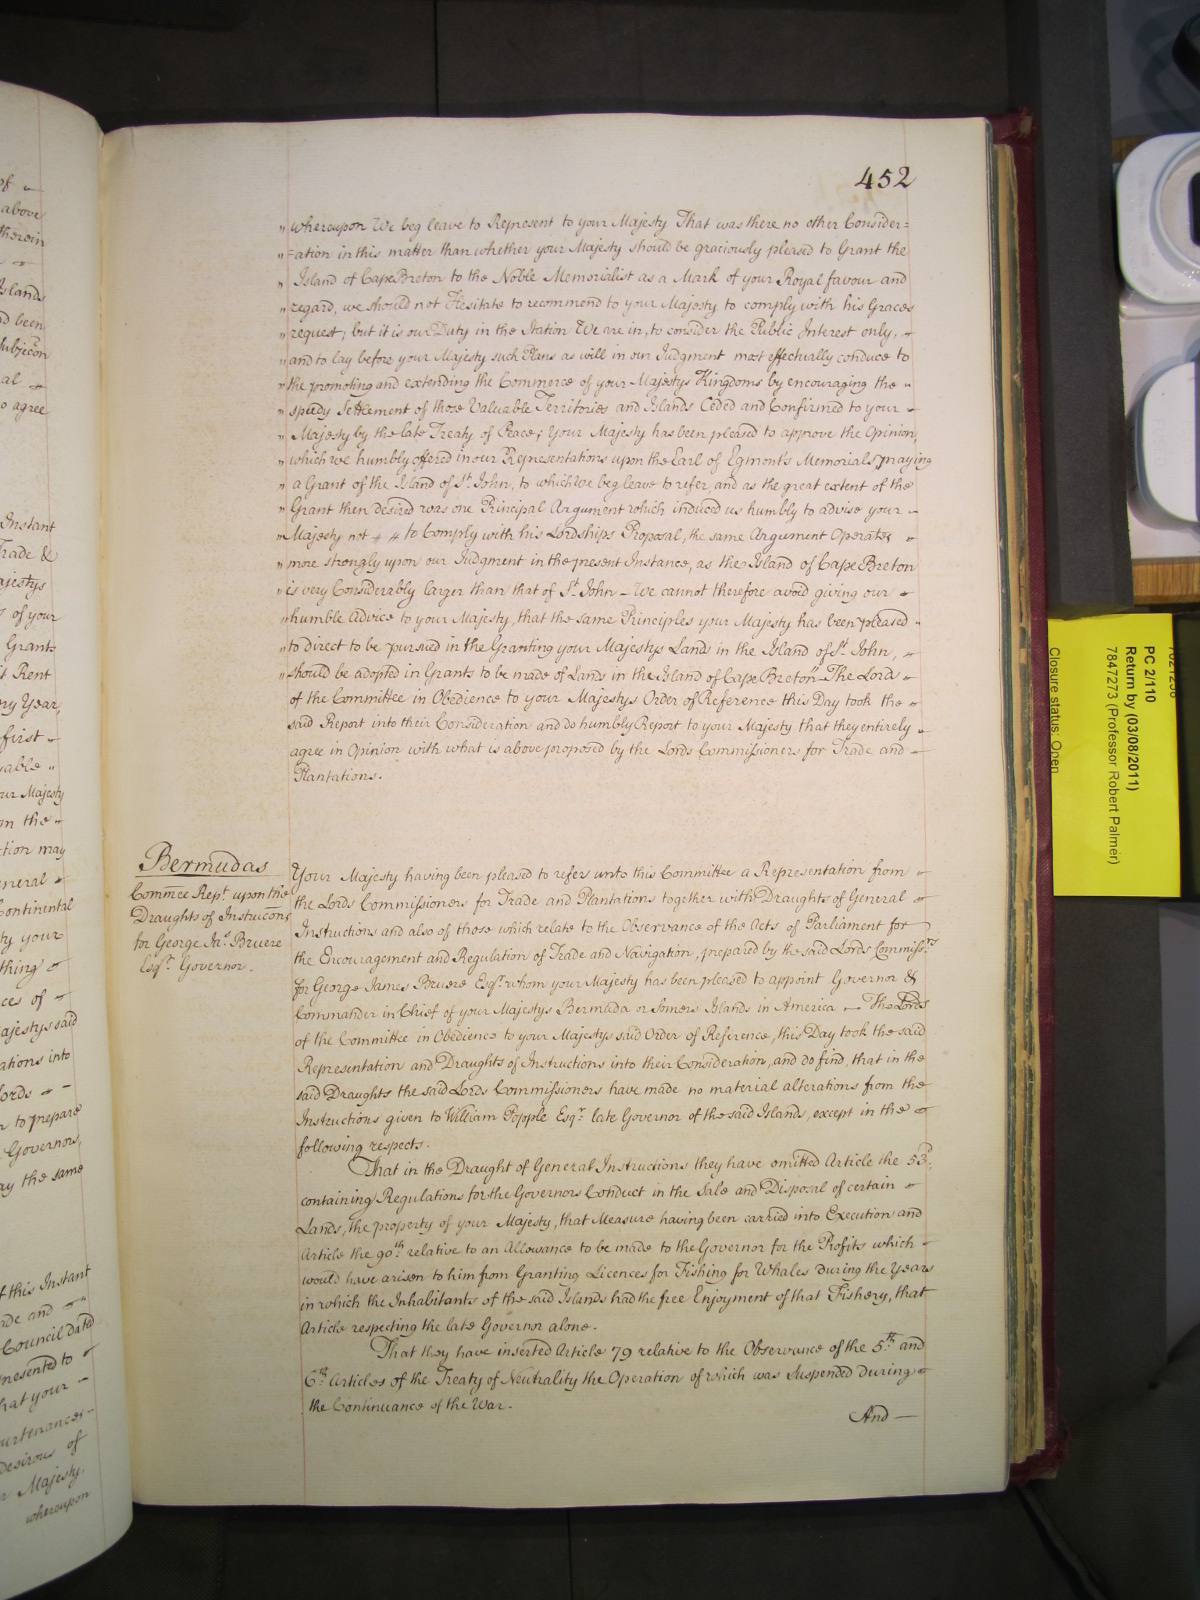 452
" whereupon We beg leave to Represent to your Majesty That was there no other Consider=
" =ation in this matter than whether your Majesty should be graciously pleased to Grant the
" Island of Cape Breton to the Noble Memorialist as a Mark of your Royal favour and
" regard, we should not Hesitate to recommend to your Majesty to comply with his Graces
" request; but it is our Duty in the Station We are in, to consider the Public Interest only,
" and to lay before your Majesty such Plans as will in our Judgment most effectually conduce to
" the promoting and extending the Commerce of your Majestys Kingdoms by encouraging the
" speedy Settlement of those Valuable Territories and Islands Ceded and Confirmed to your
" Majesty by the late Treaty of Peace; Your Majesty has been pleased to approve the Opinion,
" which we humbly offered in our Representations upon the Earl of Egmonts Memorials praying
" a Grant of the Island of St. John, to which We beg leave to refer, and as the great extent of the
" Grant then desired was one Principal Argument which induced us humbly to advise your
" Majesty not to Comply with his Lordships Proposal, the same Argument Operates
" more strongly upon our Judgment in the present Instance, as the Island of Cape Breton
" is very Considerably larger than that of St. John – We cannot therefore avoid giving our
" humble Advice to your Majesty, that the same Principles your Majesty has been pleased
" to direct to be pursued in the Granting your Majestys Lands in the Island of St. John,
" should be adopted in Grants to be made of Lands in the Island of Cape Breton" – The Lords
of the Committee in Obedience to your Majestys Order of Reference this Day took the
said Report into their Consideration and do humbly Report to your Majesty that they entirely
agree in Opinion with what is above proposed by the Lords Commissioners for Trade and
Plantations.
Bermudas
Commee Rept. upon the
Draughts of Instrucons
for George Jas. Bruere
Esqr. Governor.
Your Majesty having been pleased to refer unto this Committee a Representation from
the Lords Commissioners for Trade and Plantations together with Draughts of General
Instructions and also of those which relate to the Observance of the Acts of Parliament for
the Encouragement and Regulation of Trade and Navigation, prepared by the said Lords Commissrs.
for George James Bruere Esqr. whom your Majesty has been pleased to appoint Governor &
Commander in Chief of your Majestys Bermuda or Somers Islands in America – The Lords
of the Committee in Obedience to your Majestys said Order of Reference, this Day took the said
Representation and Draughts of Instructions into their Consideration, and do find, that in the
said Draughts the said Lords Commissioners have made no material alterations from the
Instructions given to William Popple Esqr. late Governor of the said Islands, except in the
following respects.
That in the Draught of General Instructions they have omitted Article the 53d.
containing Regulations for the Governors Conduct in the Sale and Disposal of certain
Lands, the property of your Majesty, that Measure having been carried into Execution and
Article the 90th. relative to an Allowance to be made to the Governor for the Profits which
would have arisen to him from Granting Licences for Fishing for Whales during the Years
in which the Inhabitants of the said Islands had the free Enjoyment of that Fishery, that
Article respecting the late Governor alone.
That they have inserted Article 79 relative to the Observance of the 5th. and
6th. Articles of the Treaty of Neutrality the Operation of which was Suspended during
the Continuance of the War.
And –
PC 2/110
Return by (03/08/2011)
7847273 (Professor Robert Palmer)
Closure status: Open